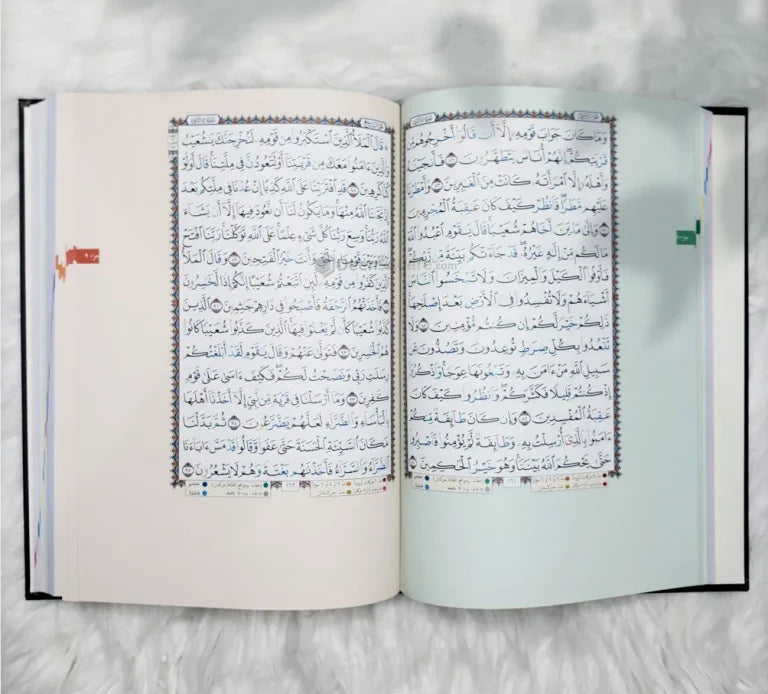 وَمَا كَانَ جَوَابَ قَوْمِهِۦٓ إِلَّآ أَن قَالُوٓا۟ أَخْرِجُوهُم مِّن
قَرْيَتِكُمْ إِنَّهُمْ أُنَاسٌ يَتَطَهَّرُونَ ٨٢ فَأَنجَيْنَٰهُ
وَأَهْلَهُۥٓ إِلَّا ٱمْرَأَتَهُۥ كَانَتْ مِنَ ٱلْغَٰبِرِينَ ٨٣ وَأَمْطَرْنَا
عَلَيْهِم مَّطَرًا فَٱنظُرْ كَيْفَ كَانَ عَٰقِبَةُ ٱلْمُجْرِمِينَ
٨٤ وَإِلَىٰ مَدْيَنَ أَخَاهُمْ شُعَيْبًا قَالَ يَٰقَوْمِ ٱعْبُدُوا۟ ٱللَّهَ
مَا لَكُم مِّنْ إِلَٰهٍ غَيْرُهُۥ قَدْ جَآءَتْكُم بَيِّنَةٌ مِّن رَّبِّكُمْ
فَأَوْفُوا۟ ٱلْكَيْلَ وَٱلْمِيزَانَ وَلَا تَبْخَسُوا۟ ٱلنَّاسَ
أَشْيَآءَهُمْ وَلَا تُفْسِدُوا۟ فِى ٱلْأَرْضِ بَعْدَ إِصْلَٰحِهَا
ذَٰلِكُمْ خَيْرٌ لَّكُمْ إِن كُنتُم مُّؤْمِنِينَ ٨٥ وَلَا
تَقْعُدُوا۟ بِكُلِّ صِرَٰطٍ تُوعِدُونَ وَتَصُدُّونَ عَن
سَبِيلِ ٱللَّهِ مَنْ ءَامَنَ بِهِۦ وَتَبْغُونَهَا عِوَجًا وَٱذْكُرُوٓا۟
إِذْ كُنتُمْ قَلِيلًا فَكَثَّرَكُمْ وَٱنظُرُوا۟ كَيْفَ كَانَ
عَٰقِبَةُ ٱلْمُفْسِدِينَ ٨٦ وَإِن كَانَ طَآئِفَةٌ مِّنكُمْ
ءَامَنُوا۟ بِٱلَّذِىٓ أُرْسِلْتُ بِهِۦ وَطَآئِفَةٌ لَّمْ يُؤْمِنُوا۟ فَٱصْبِرُوا۟
حَتَّىٰ يَحْكُمَ ٱللَّهُ بَيْنَنَا وَهُوَ خَيْرُ ٱلْحَٰكِمِينَ ٨٧
١٦١
قَالَ ٱلْمَلَأُ ٱلَّذِينَ ٱسْتَكْبَرُوا۟ مِن قَوْمِهِۦ لَنُخْرِجَنَّكَ يَٰشُعَيْبُ
وَٱلَّذِينَ ءَامَنُوا۟ مَعَكَ مِن قَرْيَتِنَآ أَوْ لَتَعُودُنَّ فِى مِلَّتِنَا قَالَ أَوَلَوْ
كُنَّا كَٰرِهِينَ ٨٨ قَدِ ٱفْتَرَيْنَا عَلَى ٱللَّهِ كَذِبًا إِنْ عُدْنَا فِى مِلَّتِكُم بَعْدَ
إِذْ نَجَّىٰنَا ٱللَّهُ مِنْهَا وَمَا يَكُونُ لَنَآ أَن نَّعُودَ فِيهَآ إِلَّآ أَن يَشَآءَ
ٱللَّهُ رَبُّنَا وَسِعَ رَبُّنَا كُلَّ شَىْءٍ عِلْمًا عَلَى ٱللَّهِ تَوَكَّلْنَا رَبَّنَا ٱفْتَحْ
بَيْنَنَا وَبَيْنَ قَوْمِنَا بِٱلْحَقِّ وَأَنتَ خَيْرُ ٱلْفَٰتِحِينَ ٨٩ وَقَالَ ٱلْمَلَأُ
ٱلَّذِينَ كَفَرُوا۟ مِن قَوْمِهِۦ لَئِنِ ٱتَّبَعْتُمْ شُعَيْبًا إِنَّكُمْ إِذًا لَّخَٰسِرُونَ
٩٠ فَأَخَذَتْهُمُ ٱلرَّجْفَةُ فَأَصْبَحُوا۟ فِى دَارِهِمْ جَٰثِمِينَ ٩١ ٱلَّذِينَ
كَذَّبُوا۟ شُعَيْبًا كَأَن لَّمْ يَغْنَوْا۟ فِيهَا ٱلَّذِينَ كَذَّبُوا۟ شُعَيْبًا كَانُوا۟
هُمُ ٱلْخَٰسِرِينَ ٩٢ فَتَوَلَّىٰ عَنْهُمْ وَقَالَ يَٰقَوْمِ لَقَدْ أَبْلَغْتُكُمْ
رِسَٰلَٰتِ رَبِّى وَنَصَحْتُ لَكُمْ فَكَيْفَ ءَاسَىٰ عَلَىٰ قَوْمٍ
كَٰفِرِينَ ٩٣ وَمَآ أَرْسَلْنَا فِى قَرْيَةٍ مِّن نَّبِىٍّ إِلَّآ أَخَذْنَآ أَهْلَهَا
بِٱلْبَأْسَآءِ وَٱلضَّرَّآءِ لَعَلَّهُمْ يَضَّرَّعُونَ ٩٤ ثُمَّ بَدَّلْنَا
مَكَانَ ٱلسَّيِّئَةِ ٱلْحَسَنَةَ حَتَّىٰ عَفَوا۟ وَّقَالُوا۟ قَدْ مَسَّ ءَابَآءَنَا
ٱلضَّرَّآءُ وَٱلسَّرَّآءُ فَأَخَذْنَٰهُم بَغْتَةً وَهُمْ لَا يَشْعُرُونَ ٩٥
١٦٢